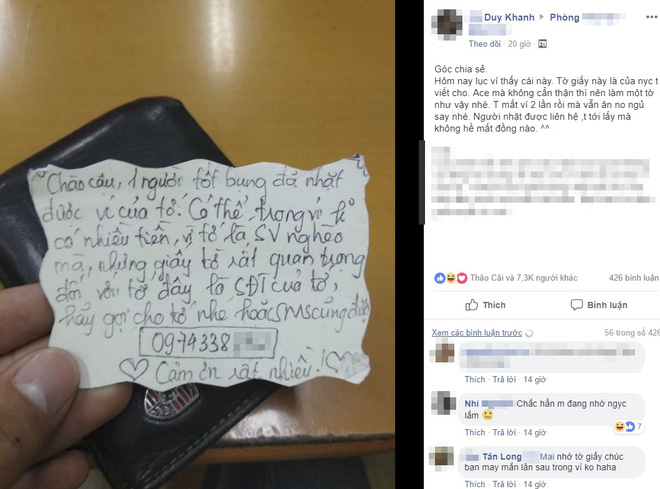 Chào cậu, 1 người tốt bụng đã nhặt
được ví của tớ. Có thể, trong ví k
có nhiều tiền, vì tớ là SV nghèo
mà, nhưng giấy tờ rất quan trọng
đối với tớ đây là SĐT của tớ,
hãy gọi cho tớ nhé hoặc SMS cũng được
0974338
Cảm ơn rất nhiều!
Duy Khanh ▸ Phòng
Theo dõi · 20 giờ ·
Góc chia sẻ.
Hôm nay lục ví thấy cái này. Tờ giấy này là của nyc t
viết cho. Ace mà không cẩn thận thì nên làm một tờ
như vậy nhé. T mất ví 2 lần rồi mà vẫn ăn no ngủ
say nhé. Người nhặt được liên hệ ,t tới lấy mà
không hề mất đồng nào. ^^
Thảo Cải và 7,3K người khác
426 bình luận
Thích
Bình luận
Xem các bình luận trước
56 trong số 426
Thích · Trả lời · 14 giờ
Nhi Chắc hẳn m đang nhớ ngyc
lắm
7
Thích · Trả lời · 14 giờ
Tân Long Mai nhớ tờ giấy chúc
bạn may mắn lần sau trong ví ko haha
Thích · Trả lời · 14 giờ